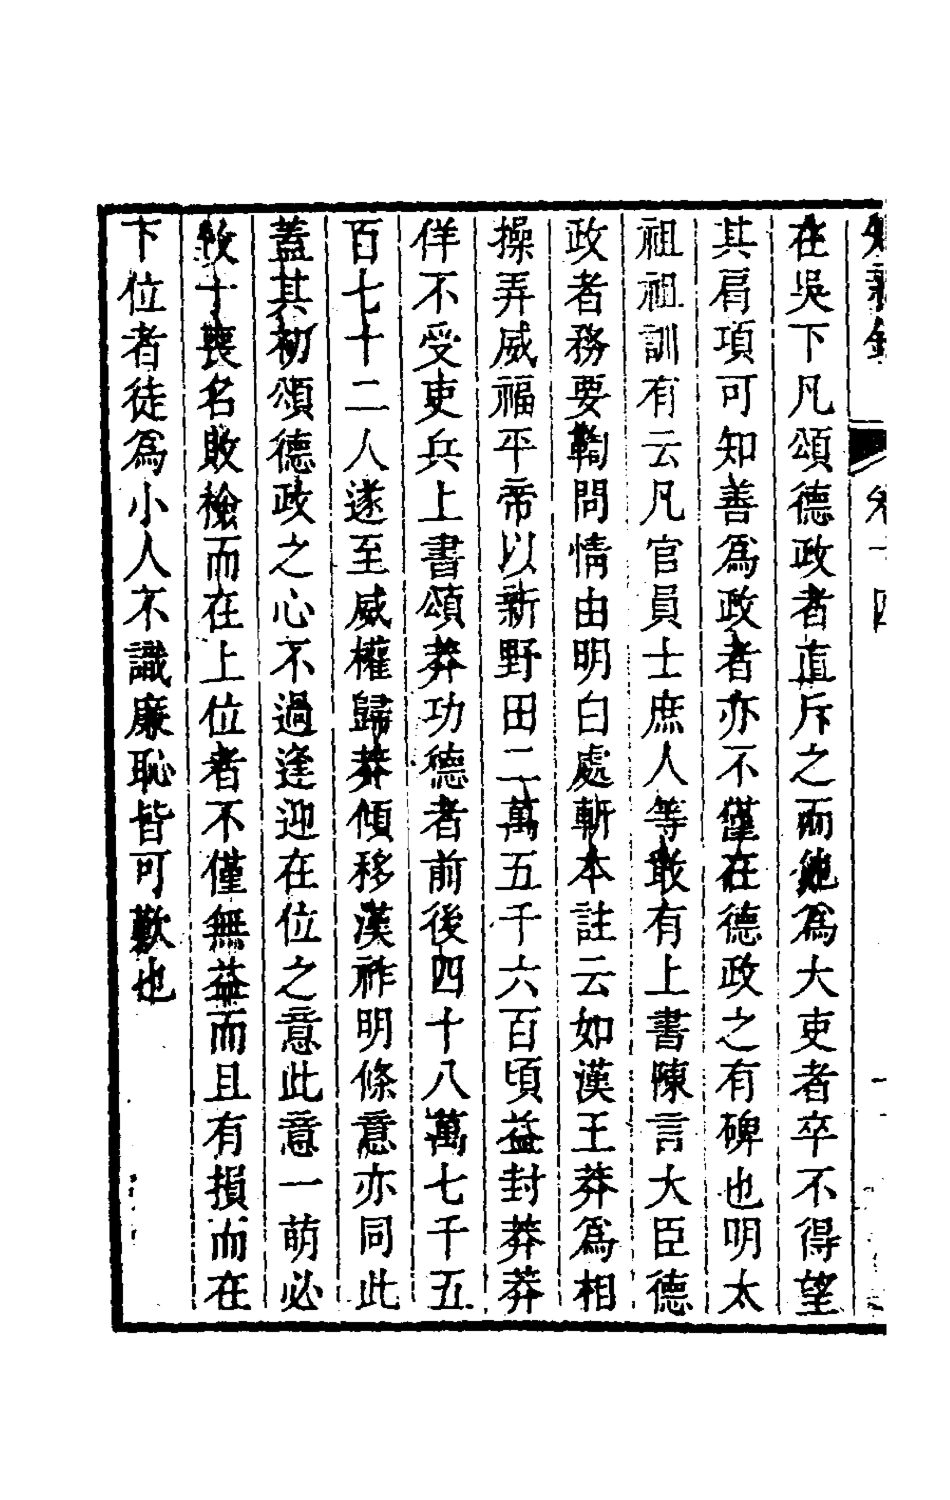 在吳下凡頌德政者直斥之而他爲大吏者卒不得望
其肩項可知善爲政者亦不僅在德政之有碑也明太
祖祖訓有云凡官員士庶人等敢有上書陳言大臣德
政者務要鞫問情由明白處斬本註云如漢王莽爲相
操弄威福平帝以新野田二萬五千六百頃益封莽莽
佯不受吏民上書頌莽功德者前後四十八萬七千五
百七十二人遂至威權歸莽傾移漢祚明條意亦同此
蓋其初頌德政之心不過逢迎在位之意此意一萌必
致十喪名敗檢而在上位者不僅無益而且有損而在
下位者徒爲小人不識廉恥皆可歎也